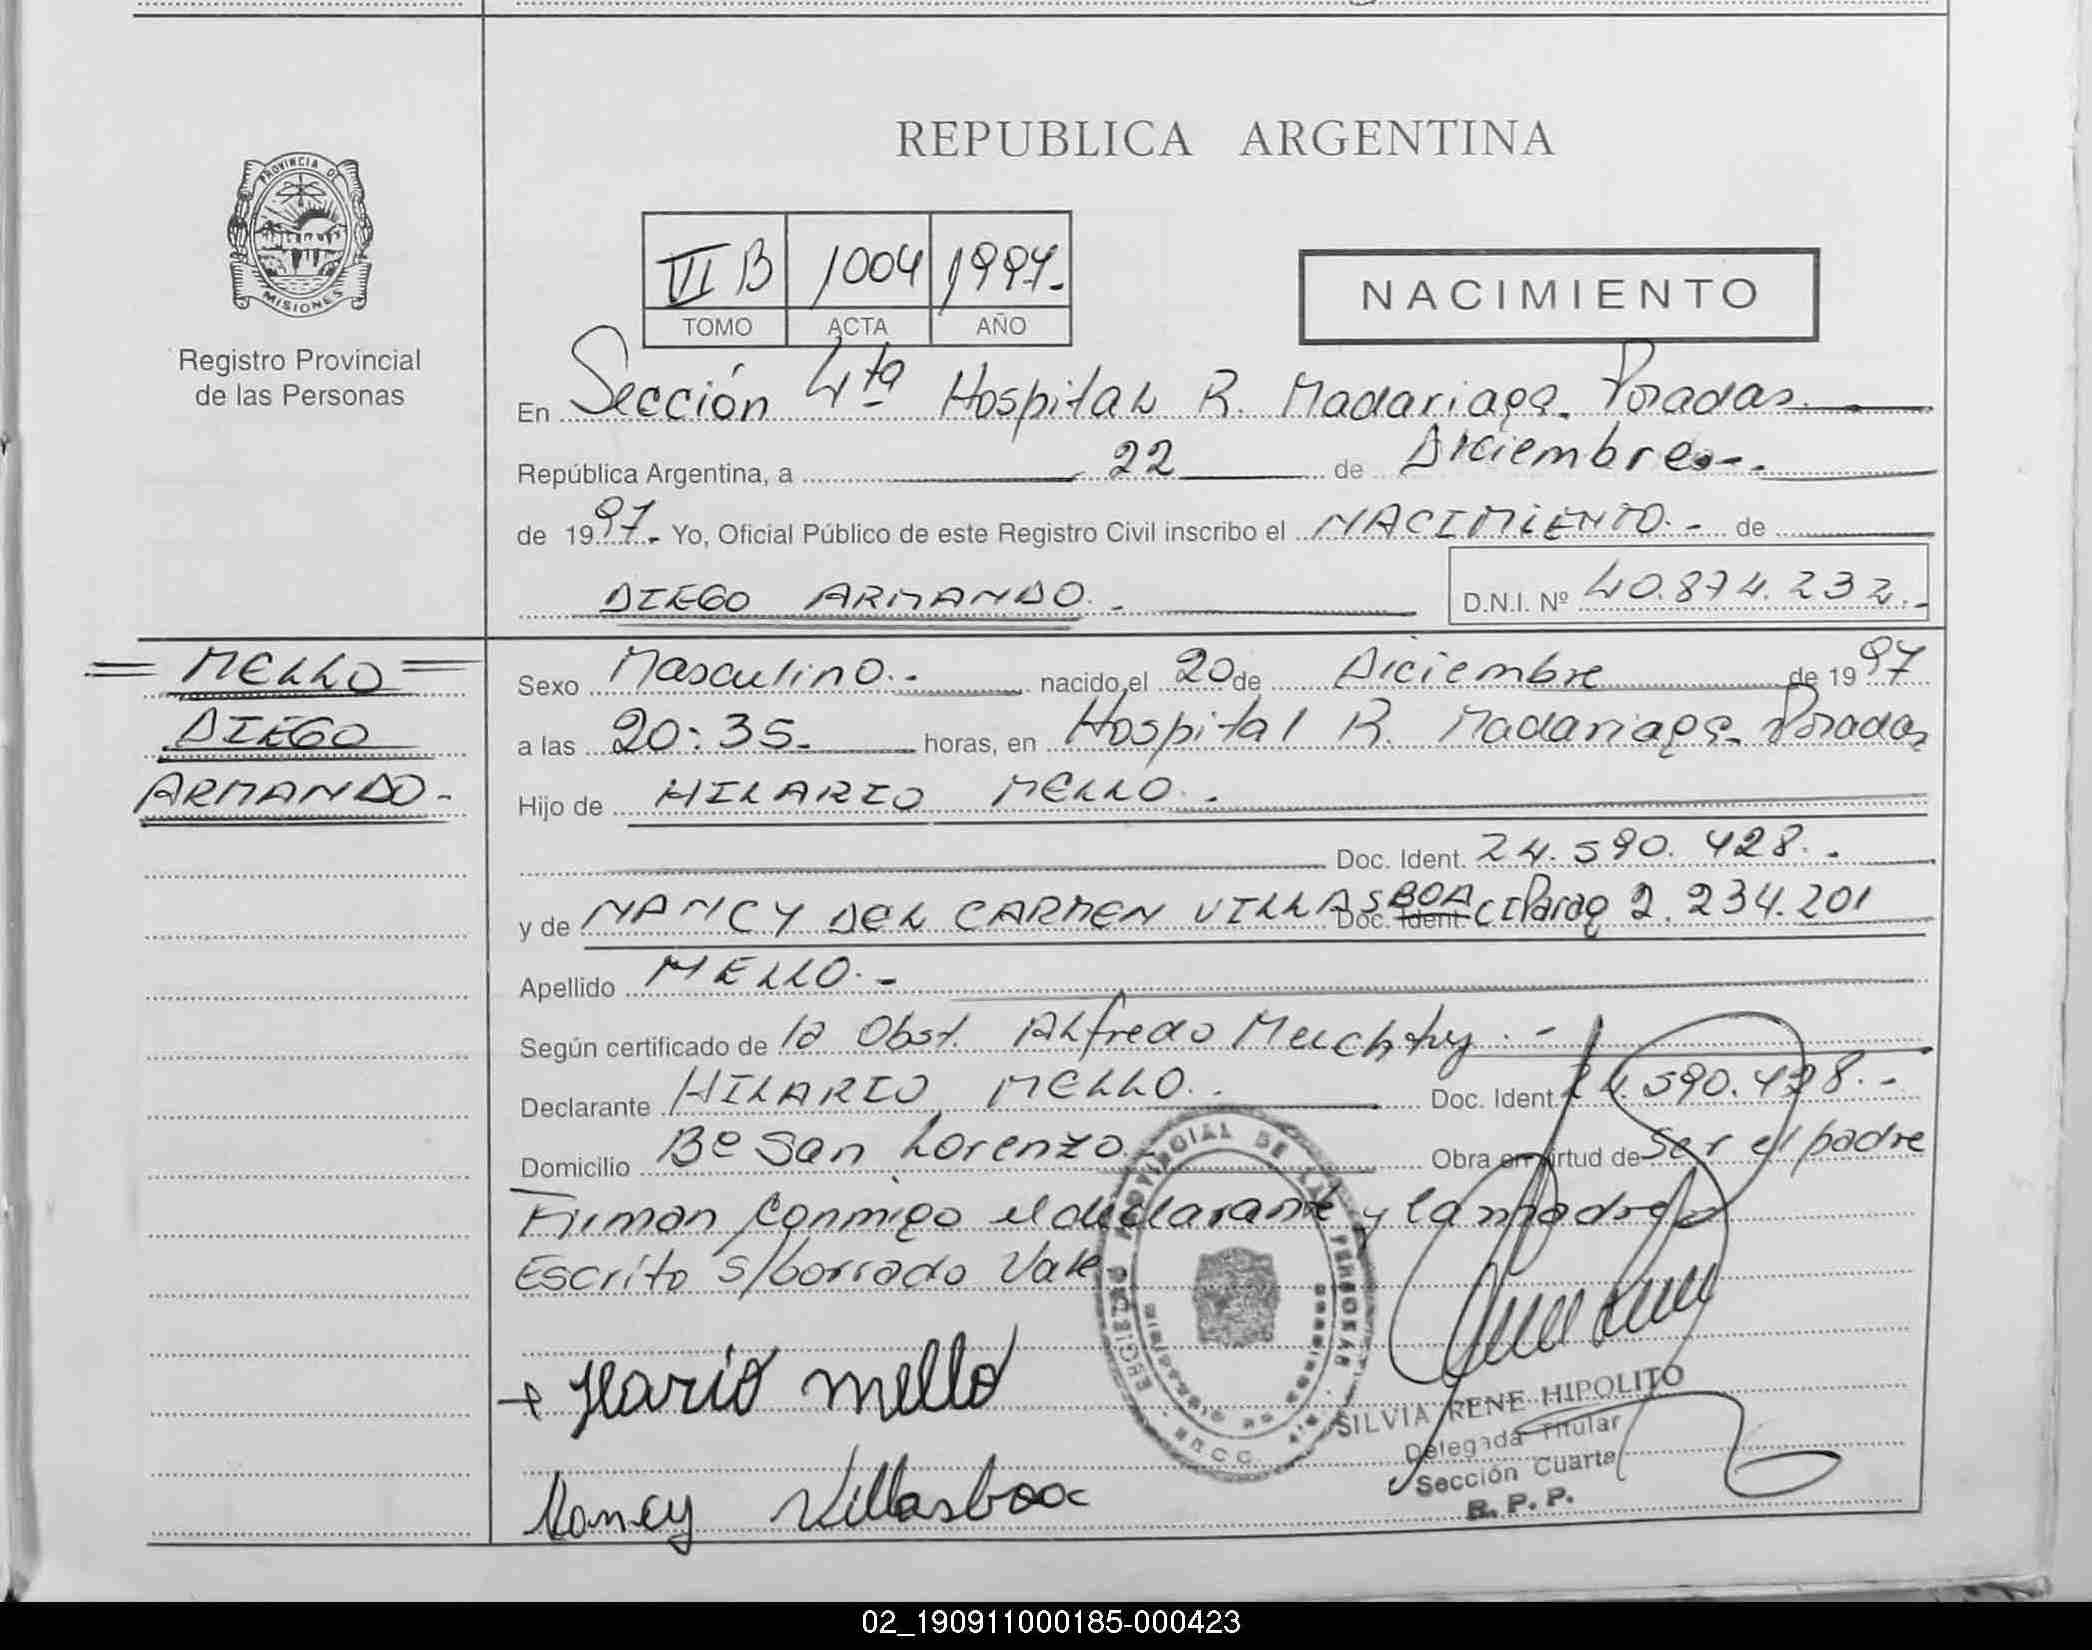 REPUBLICA ARGENTINA
PROVINCIA DE
MISIONES
Registro Provincial
de las Personas
VI B 1004 1997.-
TOMO ACTA AÑO
NACIMIENTO
En Sección 4ta Hospital R. Madariaga. Posadas.
República Argentina, a 22 de Diciembre.-.
de 1997.- Yo, Oficial Público de este Registro Civil inscribo el NACIMIENTO.- de
DIEGO ARMANDO.- D.N.I. Nº 40.874.232.-
= MELLO =
DIEGO
ARMANDO.-
Sexo Masculino.- nacido el 20 de Diciembre de 1997
a las 20:35.- horas, en Hospital R. Madariaga. Posadas
Hijo de HILARIO MELLO.-
Doc. Ident. 24.590.428.-
y de NANCY DEL CARMEN VILLASBOA Doc. Ident. CI Parag 2.234.201
Apellido MELLO.-
Según certificado de la Obst. Alfredo .-
Declarante HILARIO MELLO.- Doc. Ident. 24.590.428.-
Domicilio Bº San Lorenzo. Obra en virtud de Ser el padre
Firman conmigo el declarante y la madre
Escrito s/borrado Vale
+ Ilario mello
Nancy Villasboa
SILVIA RENE HIPOLITO
Delegada Titular
Sección Cuarta
R. P. P.
02_190911000185-000423